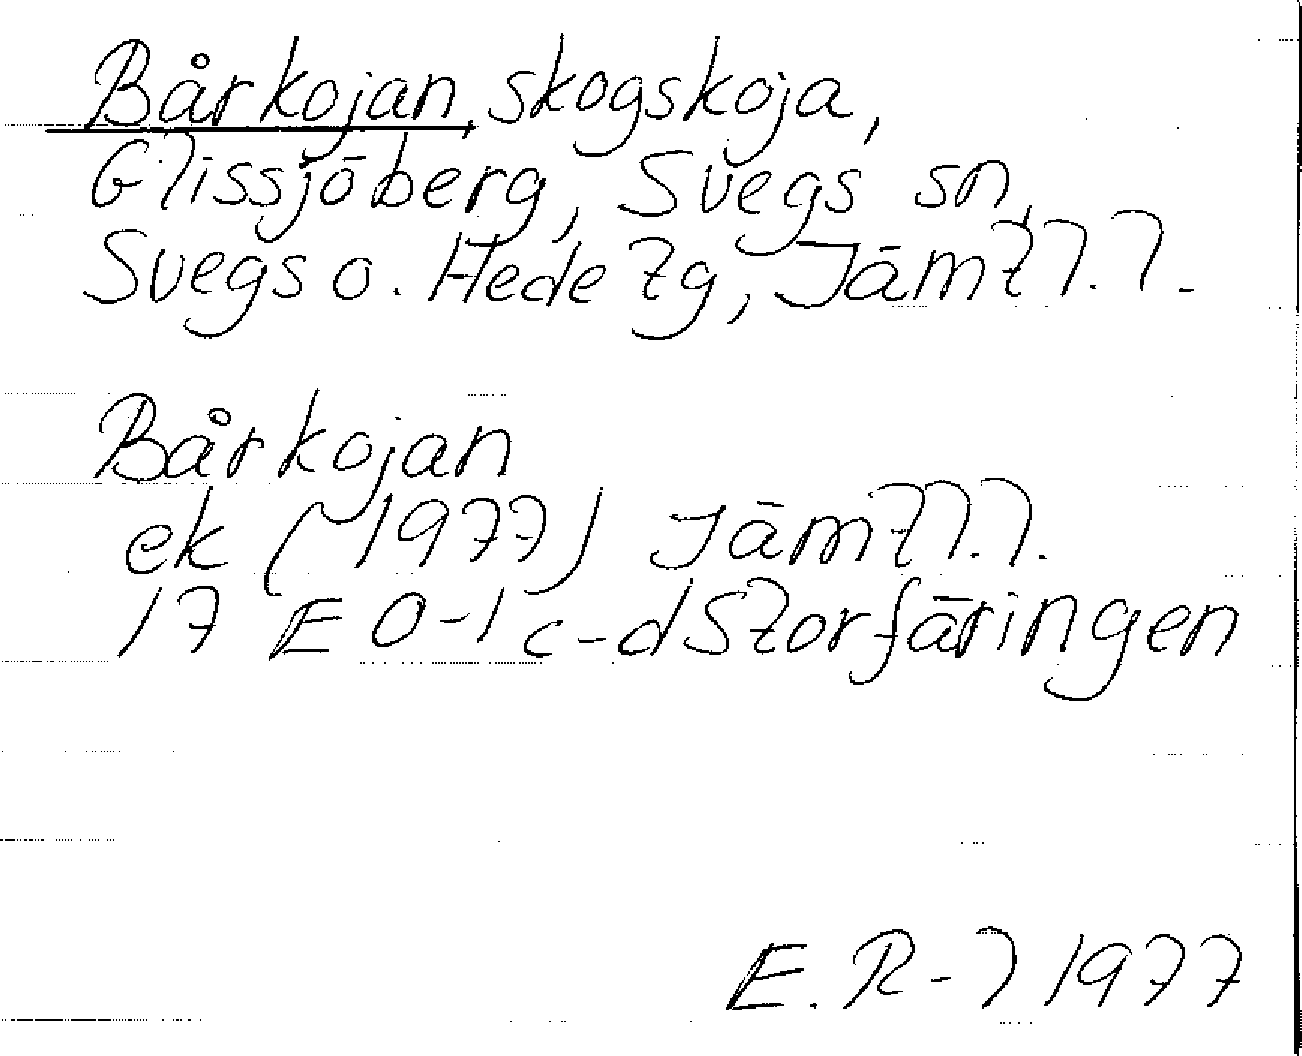 Bårkojan, skogskoja,
Glissjöberg, Svegs sn,
Svegs o. Hede tg, Jämtl.l.
Bårkojan
ek (1977) Jämtl.l.
17 E 0-1 c-d Storfäringen
E. R-l 1977